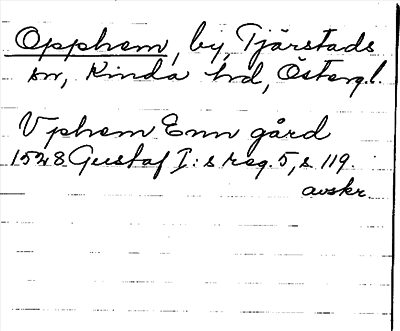 Opphem, by, Tjärstads
sn, Kinda hd, Östergl.
Vphem Enn gård
1528 Gustaf I:s reg. 5, s 119.
avskr